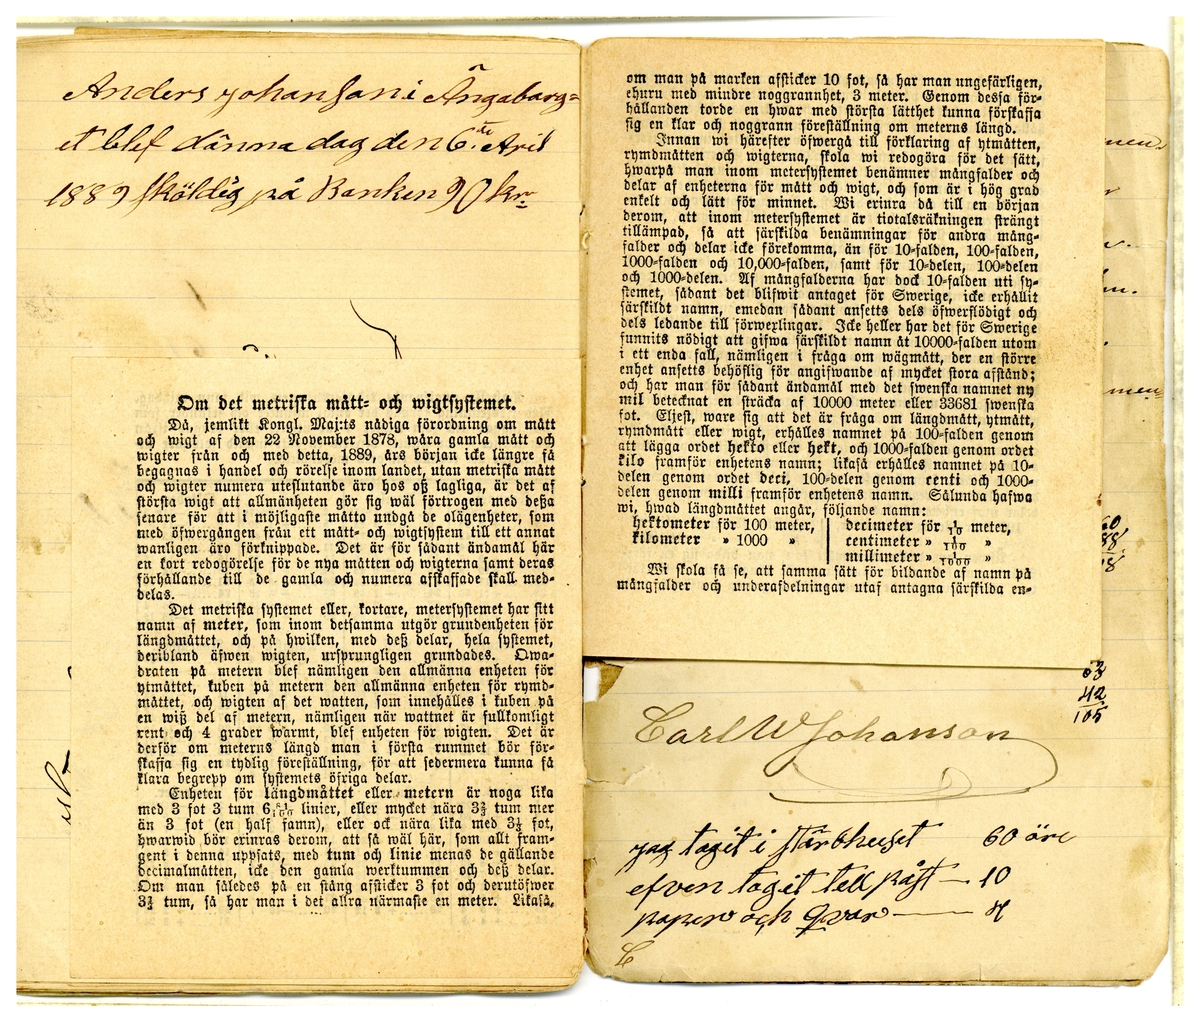 Anders Johanson i Ängabarg=
et blef dänna dag den 6.te April
1889 sköldig på Banken 90 kr
Om det metriska mått- och wigtsystemet.
Då, jemlikt Kongl. Maj:ts nådiga förordning om mått
och wigt af den 22 November 1878, wåra gamla mått och
wigter från och med detta, 1889, års början icke längre få
begagnas i handel och rörelse inom landet, utan metriska mått
och wigter numera uteslutande äro hos oß lagliga, är det af
största wigt att allmänheten gör sig wäl förtrogen med deßa
senare för att i möjligaste måtto undgå de olägenheter, som
med öfwergången från ett mått- och wigtsystem till ett annat
wanligen äro förknippade. Det är för sådant ändamål här
en kort redogörelse för de nya måtten och wigterna samt deras
förhållande till de gamla och numera afskaffade skall med-
delas.
Det metriska systemet eller, kortare, metersystemet har sitt
namn af meter, som inom detsamma utgör grundenheten för
längdmåttet, och på hwilken, med deß delar, hela systemet,
deribland äfwen wigten, ursprungligen grundades. Qwa-
draten på metern blef nämligen den allmänna enheten för
ytmåttet, kuben på metern den allmänna enheten för rymd-
måttet, och wigten af det watten, som innehålles i kuben på
en wiß del af metern, nämligen när wattnet är fullkomligt
rent och 4 grader warmt, blef enheten för wigten. Det är
derför om meterns längd man i första rummet bör för-
skaffa sig en tydlig föreställning, för att sedermera kunna få
klara begrepp om systemets öfriga delar.
Enheten för längdmåttet eller metern är noga lika
med 3 fot 3 tum 6 81/100 linier, eller mycket nära 3⅔ tum mer
än 3 fot (en half famn), eller ock nära lika med 3⅓ fot,
hwarwid bör erinras derom, att så wäl här, som allt fram-
gent i denna uppsats, med tum och linie menas de gällande
decimalmåtten, icke den gamla werktummen och deß delar.
Om man således på en stång afsticker 3 fot och derutöfwer
3⅔ tum, så har man i det allra närmaste en meter. Likaså,
om man på marken afsticker 10 fot, så har man ungefärligen,
ehuru med mindre noggrannhet, 3 meter. Genom dessa för-
hållanden torde en hwar med största lätthet kunna förskaffa
sig en klar och noggrann föreställning om meterns längd.
Innan wi härefter öfwergå till förklaring af ytmåtten,
rymdmåtten och wigterna, skola wi redogöra för det sätt,
hwarpå man inom metersystemet benämner mångfalder och
delar af enheterna för mått och wigt, och som är i hög grad
enkelt och lätt för minnet. Wi erinra då till en början
derom, att inom metersystemet är tiotalsräkningen strängt
tillämpad, så att särskilda benämningar för andra mång-
falder och delar icke förekomma, än för 10-falden, 100-falden,
1000-falden och 10,000-falden, samt för 10-delen, 100-delen
och 1000-delen. Af mångfalderna har dock 10-falden uti sy-
stemet, sådant det blifwit antaget för Swerige, icke erhållit
särskildt namn, emedan sådant ansetts dels öfwerflödigt och
dels ledande till förwexlingar. Icke heller har det för Swerige
funnits nödigt att gifwa särskildt namn åt 10000-falden utom
i ett enda fall, nämligen i fråga om wägmått, der en större
enhet ansetts behöflig för angifwande af mycket stora afstånd;
och har man för sådant ändamål med det swenska namnet ny
mil betecknat en sträcka af 10000 meter eller 33681 swenska
fot. Eljest, ware sig att det är fråga om längdmått, ytmått,
rymdmått eller wigt, erhålles namnet på 100-falden genom
att lägga ordet hekto eller hekt, och 1000-falden genom ordet
kilo framför enhetens namn; likaså erhålles namnet på 10-
delen genom ordet deci, 100-delen genom centi och 1000-
delen genom milli framför enhetens namn. Sålunda hafwa
wi, hwad längdmåttet angår, följande namn:
hektometer för 100 meter, decimeter för 1/10 meter,
kilometer » 1000 » centimeter » 1/100 »
millimeter » 1/1000 »
Wi skola få se, att samma sätt för bildande af namn på
mångfalder och underafdelningar utaf antagna särskilda en-
42
105
Carl W Johanson
jag tagit i stärbhuset 60 öre
efven tagit tell påst — 10
paper och